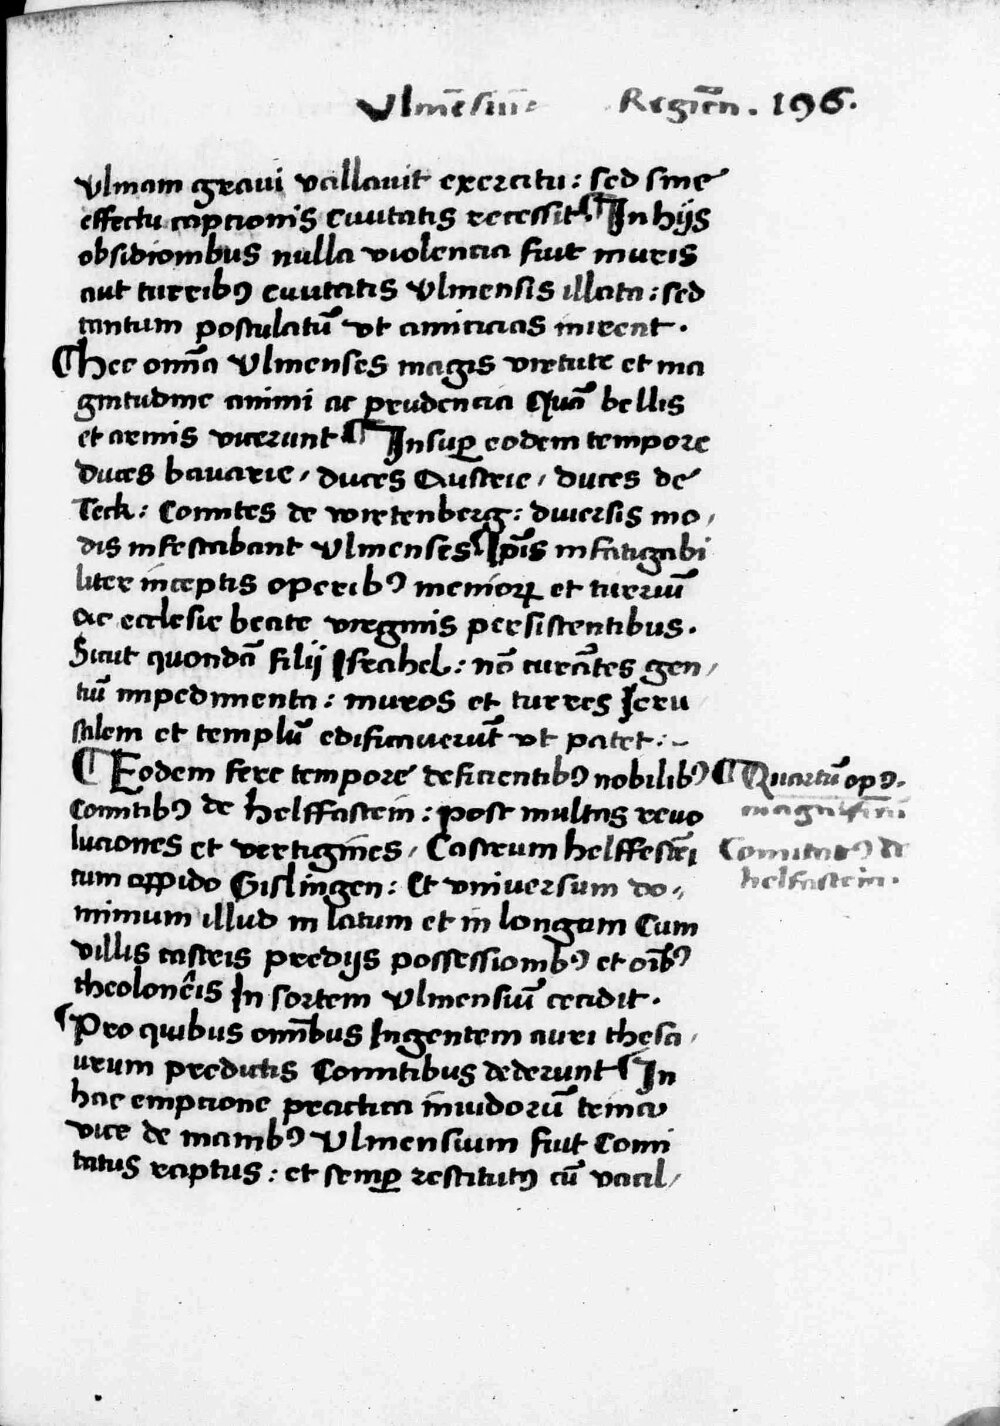 Ulmēsiū: Regimē. 196.
Ulmam graui vallauit exercitu: sed sine
effectu captionis ciuitatis recessit ¶ In hijs
obsidionibus nulla violencia fuit muris
aut turribꝰ ciuitatis Ulmensis illata: sed
tantum postulatū vt amicicias inirent.
¶ hec om̄ia Ulmenses magis virtute et ma
gnitudine animi ac prudencia Quā bellis
et armis vicerunt ¶ Insuꝑ eodem tempore
duces bauarie, duces Austrie, duces de
Teck: Comites de wirtenberg: diuersis mo,
dis infestabant Ulmenses ¶ Ip̄is infatigabi
liter inceptis operibꝰ meniorꝝ et turriū
ac ecclesie beate virginis persistentibus.
Sicut quondā filij Israhel: nō curātes gen,
tiū impedimenta: muros et turres Ieru
salem et templū edificauerūt vt patet:-
¶ Eodem fere tempore deficientibꝰ nobilibꝰ
Comitibꝰ de helffastein: post multas reuo
luciones et vertigines, Castrum helffestēi
cum oppido Gislingen: Et vniuersum do,
minium illud in latum et in longum Cum
villis castris predijs possessionibꝰ et oībꝰ
theolonēis In sortem Ulmensiū cecidit.
¶ Pro quibus omībus Ingentem auri thesa,
urum predictis Comitibus dederunt ¶ In
hac empcione practica inuidorū trina
vice de manibꝰ Ulmensium fuit Comi
tatus raptus: et semꝑ restitutꝰ cū vacil,
¶ Quartū opꝰ.
magnificū
Comitatꝰ de
helfastein.